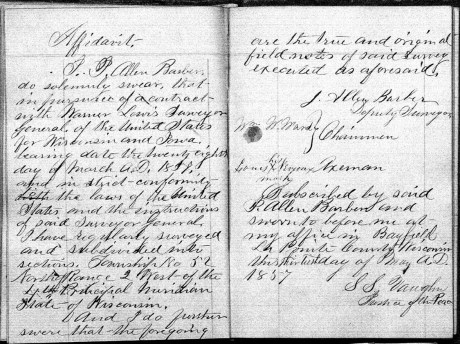 Affidavit.
I, J. Allen Barber,
do solemnly swear, that
in pursuance of a contract
with Warner Lewis Surveyor
General of the United States
for Wisconsin and Iowa,
bearing date the twenty eighth
day of March A.D. 1857,
and in strict conformity
the laws of the United
States and the instructions
of said Surveyor General,
I have surveyed
and subdivided into
sections Township No 52
North of Range 2 West of the
4th Principal Meridian
State of Wisconsin.
And I do further
swere that the foregoing
are the true and original
field notes of said survey
executed as aforesaid.
J. Allen Barber
Deputy Surveyor
W. Ward
Chainmen
his
Axeman
mark
Subscribed by said
J. Allen Barber and
sworn to before me at
my office in Bayfield
La Pointe County, Wisconsin
this day of May A.D.
1857
S.S. Vaughn
Justice of the Peace